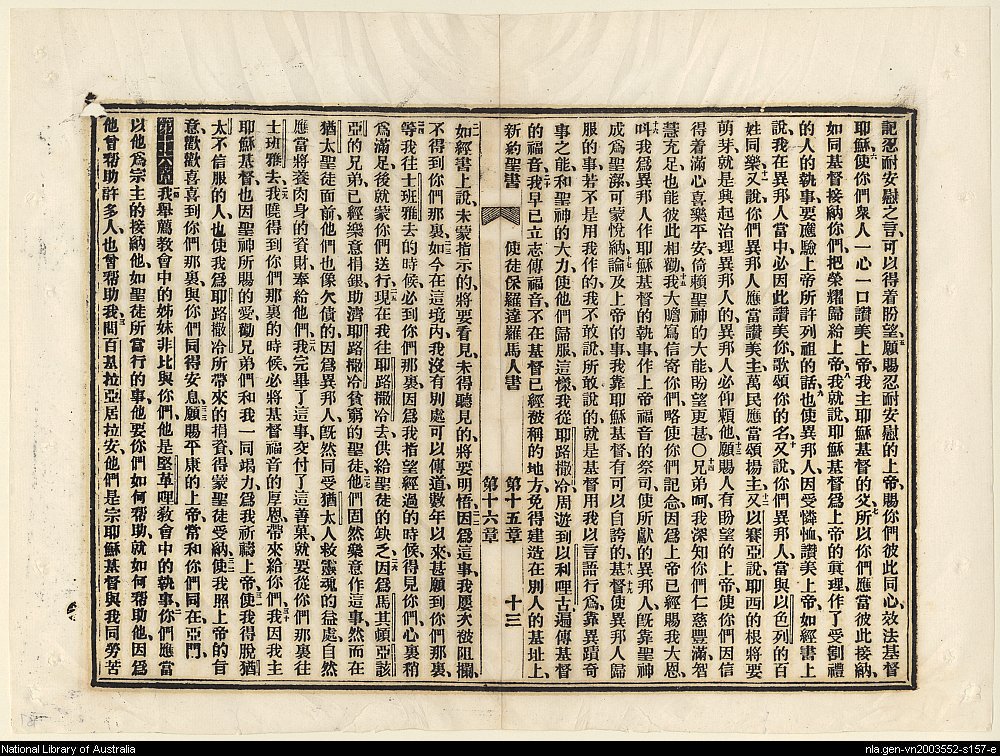 記忍耐安慰之言、可以得着盼望、願賜忍耐安慰的上帝、賜你們彼此同心、效法基督
耶穌、使你們衆人一心一口讚美上帝、我主耶穌基督的父、所以你們應當彼此接納、
如同基督接納你們、把榮耀歸給上帝、我說、耶穌基督爲上帝的眞理、作了受割禮
的人的執事、要應驗上帝所許列祖的話、也使異邦人、因受憐恤、讚美上帝、如經書上
說、我在異邦人當中、必因此讚美你、歌頌你的名、又說、你們異邦人、當與以色列的百
姓同樂、又說、你們異邦人應當讚美主、萬民應當頌揚主、又以賽亞說、耶西的根將要
萌芽、就是興起治理異邦人的、異邦人必仰賴他、願賜人有盼望的上帝、使你們因信
得着滿心喜樂平安、倚賴聖神的大能、盼望更甚、○兄弟呵、我深知你們仁慈豐滿、智
慧充足、也能彼此相勸、我大膽寫信寄你們、略使你們記念、因爲上帝已經賜我大恩、
呌我爲異邦人作耶穌基督的執事、作上帝福音的祭司、使所獻的異邦人、旣靠聖神
成爲聖潔、可蒙悅納、論及上帝的事、我靠耶穌基督有可以自誇的、基督使異邦人歸
服的事、若不是用我作的、我不敢說、所敢說的、就是基督用我、以言語行爲、靠異蹟奇
事之能、和聖神的大力、使他們歸服、這樣、我從耶路撒冷、周遊到以利哩古、遍傳基督
的福音、我早已立志傳福音、不在基督已經被稱的地方、免得建造在別人的基址上、
新約聖書　使徒保羅達羅馬人書　第十五章　第十六章　十三
如經書上說、未蒙指示的、將要看見、未得聽見的、將要明悟、因爲這事、我屢次被阻攔、
不得到你們那裏、如今在這境內、我沒有別處可以傳道、數年以來、甚願到你們那裏、
等我往士班雅去的時候、必到你們那裏、因爲我指望經過的時候、得見你們、心裏稍
爲滿足、後就蒙你們送行、現在我往耶路撒冷去、供給聖徒的缺乏、因爲馬其頓亞該
亞的兄弟、已經樂意捐銀、助濟耶路撒冷貧窮的聖徒、他們固然樂意作這事、然而在
猶太聖徒面前、他們也像欠債的、因爲異邦人、旣然同受猶太人救靈魂的益處、自然
應當將養肉身的資財、奉給他們、我完畢了這事、交付了這善菓、就要從你們那裏往
士班雅去、我曉得到你們那裏的時候、必將基督福音的厚恩帶來給你們、我因我主
耶穌基督、也因聖神所賜的愛、勸兄弟們、和我一同竭力、爲我祈禱上帝、使我得脫猶
太不信服的人、也使我爲耶路撒冷所帶來的捐資、得蒙聖徒受納、使我照上帝的旨
意、歡歡喜喜到你們那裏、與你們同得安息、願賜平康的上帝、常和你們同在、亞們、
第十六章　我舉薦教會中的姊妹非比與你們、他是堅革哩教會中的執事、你們應當
以他爲宗主的接納他、如聖徒所當行的事、他要你們如何幫助、就如何幫助他、因爲
他曾幫助許多人、也曾幫助我、問百基拉亞居拉安、他們是宗耶穌基督與我同勞苦
National Library of Australia
nla.gen-vn2003552-s157-e